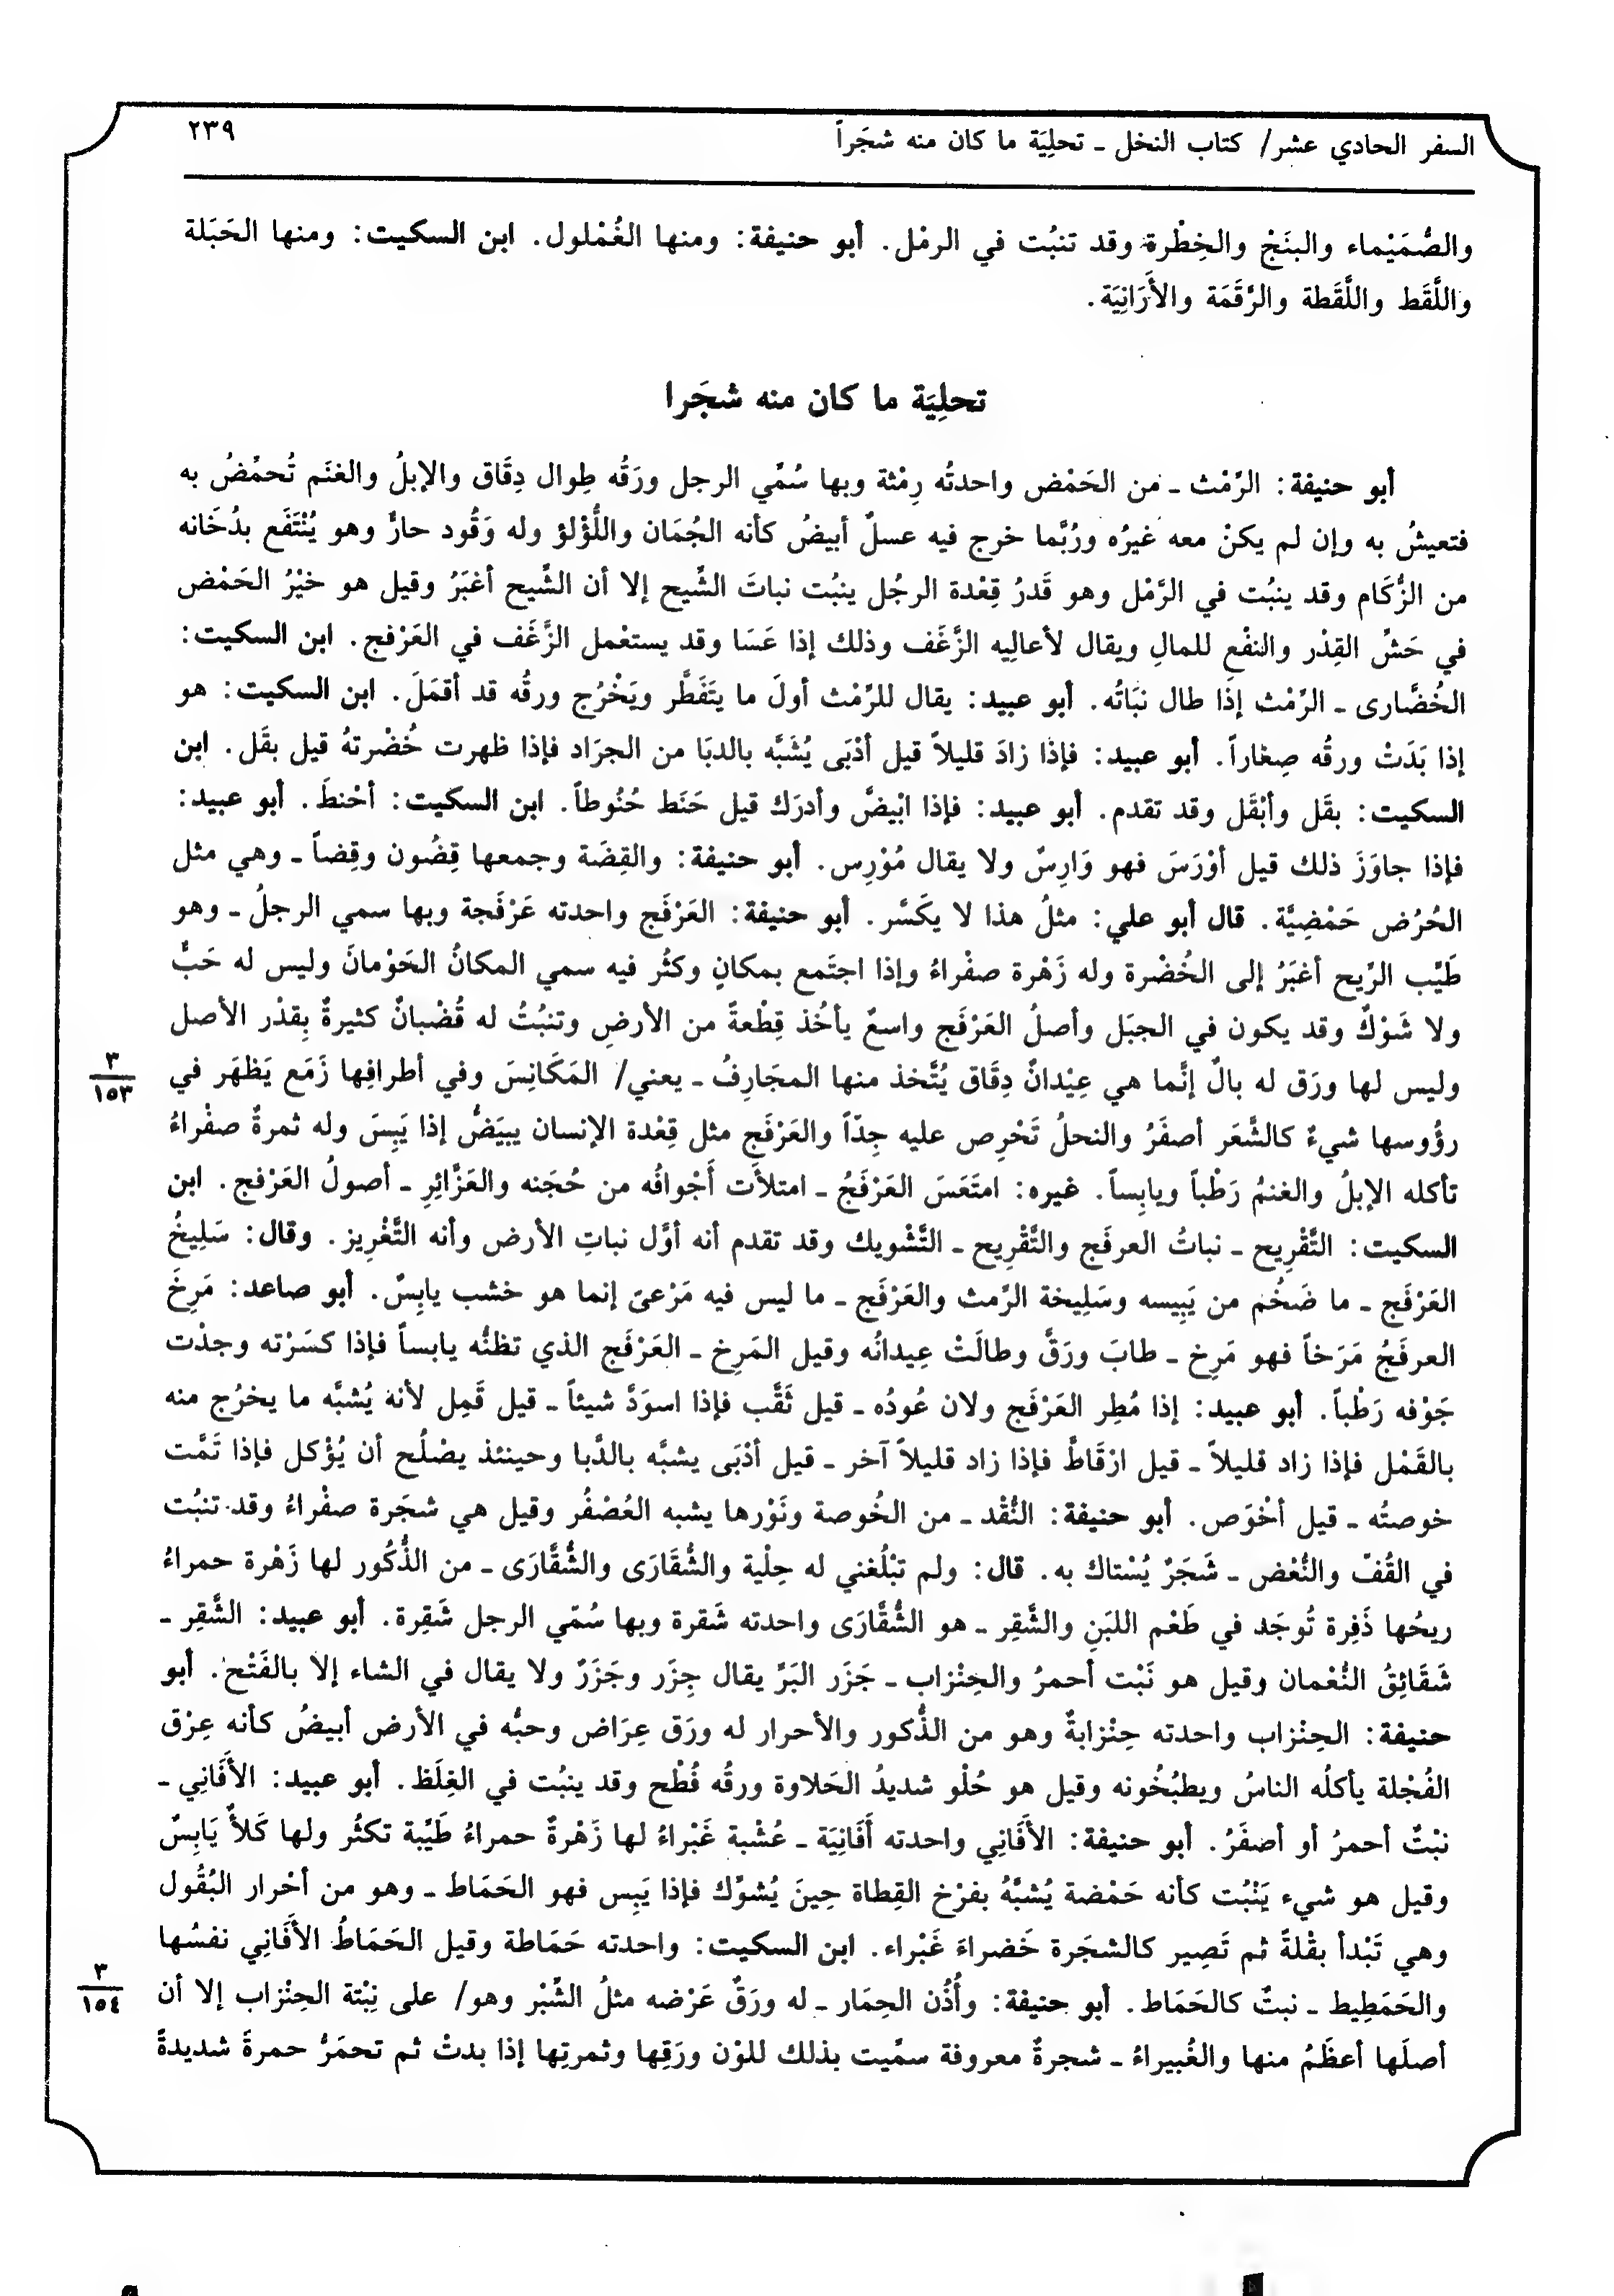 السفر الحادي عشر/ كتاب النخل ـ تحلِيَة ما كان منه شجَراً
٢٣٩
والصُّمَيْماء والبنَجْ والخِطْرة وقد تنبُت في الرمْل. أبو حنيفة: ومنها الغُمْلول. ابن السكيت: ومنها الحَبَلة
واللَّقَط واللَّقَطة والرَّقَمَة والأَرَانِيَة.
تحلِيَة ما كان منه شجَرا
أبو حنيفة: الرِّمْث ـ من الحَمْض واحدتُه رِمْثة وبها سُمِّي الرجل ورَقُه طِوال دِقَاق والإبلُ والغنَم تُحمَّضُ به
فتعيشُ به وإن لم يكنْ معه غيرُه ورُبَّما خرج فيه عسلٌ أبيضُ كأنه الجُمَان واللُّؤْلؤ وله وَقُود حارٌّ وهو يُنْتَفَع بدُخَانه
من الزُّكَام وقد ينبُت في الرَّمْل وهو قَدرُ قِعْدة الرجُل ينبُت نباتَ الشِّيح إلا أن الشِّيح أغبَرُ وقيل هو خيْرُ الحَمْض
في حَشِّ القِدْر والنفْع للمالِ ويقال لأعالِيه الزَّغَف وذلك إذا عَسَا وقد يستعْمل الزَّغَف في العَرْفج. ابن السكيت:
الخُضَّارى ـ الرِّمْث إذا طال نبَاتُه. أبو عبيد: يقال للرِّمْث أولَ ما يتَفَطَّر ويَخْرُج ورقُه قد أقمَلَ. ابن السكيت: هو
إذا بَدَتْ ورقُه صِغاراً. أبو عبيد: فإذا زادَ قليلاً قيل أدْبَى يُشَبَّه بالدبَا من الجرَاد فإذا ظهرت خُضْرتهُ قيل بقَل. ابن
السكيت: بقَل وأبْقَل وقد تقدم. أبو عبيد: فإذا ابْيضَّ وأدرَك قيل حَنَط حُنُوطاً. ابن السكيت: أحْنطَ. أبو عبيد:
فإذا جاوَزَ ذلك قيل أوْرَسَ فهو وَارِسٌ ولا يقال مُوْرِس. أبو حنيفة: والقِضَة وجمعها قِضُون وقِضاً ـ وهي مثل
الحُرُض حَمْضِيَّة. قال أبو علي: مثلُ هذا لا يكَسَّر. أبو حنيفة: العَرْفَج واحدته عَرْفَجة وبها سمي الرجلُ ـ وهو
طَيِّب الرِّيح أغبَرُ إلى الخُضْرة وله زَهْرة صفْراءُ وإذا اجتَمع بمكانٍ وكثُر فيه سمي المكانُ الحَوْمانَ وليس له حَبٌّ
ولا شَوْكٌ وقد يكون في الجبَل وأصلُ العَرْفَج واسعٌ يأخُذ قِطْعةً من الأرضِ وتنبُتُ له قُضْبانٌ كثيرةٌ بِقدْر الأصل
٣
١٥٣
وليس لها ورَق له بالٌ إنَّما هي عِيْدانٌ دِقَاق يُتَّخذ منها المجَارِفُ ـ يعني/ المَكَانِسَ وفي أطرافِها زَمَع يَظهَر في
رؤُوسها شيءٌ كالشَّعَر أصفَرُ والنحلُ تَحْرِص عليه جِدّاً والعَرْفَج مثل قِعْدة الإنسان يبيَضُّ إذا يَبِسَ وله ثمرةٌ صفْراءُ
تأكله الإبلُ والغنمُ رَطْباً ويابِساً. غيره: امتَعَسَ العَرْفَجُ ـ امتلأت أَجْوافُه من حُجَنه والعَزَّائِرِ ـ أصولُ العَرْفج. ابن
السكيت: التَّقْرِيح ـ نباتُ العرفَج والتَّقْرِيح ـ التَّشْويك وقد تقدم أنه أوَّل نباتِ الأرض وأنه التَّغْرِيز. وقال: سَلِيخُ
العَرْفَج ـ ما ضَخُم من يَبِيسه وسَلِيخة الرِّمث والعَرْفَج ـ ما ليس فيه مَرْعىً إنما هو خشب يابِسٌ. أبو صاعد: مَرِخَ
العرفَجُ مَرَخاً فهو مَرِخ ـ طابَ ورَقَّ وطالَتْ عِيدانُه وقيل المَرِخ ـ العَرْفَج الذي تظنُّه يابساً فإذا كسَرْته وجدْت
جَوْفه رَطْباً. أبو عبيد: إذا مُطِر العَرْفَج ولان عُودُه ـ قيل ثَقَّب فإذا اسوَدَّ شيئاً ـ قيل قَمِل لأنه يُشبَّه ما يخرُج منه
بالقَمْل فإذا زاد قليلاً ـ قيل ارْقَاطَّ فإذا زاد قليلاً آخر ـ قيل أدْبَى يشبَّه بالدَّبا وحينئذ يصْلُح أن يُؤْكل فإذا تَمَّت
خوصتُه ـ قيل أخْوَص. أبو حنيفة: النُّقْد ـ من الخُوصة ونَوْرها يشبه العُصْفُر وقيل هي شجَرة صفْراءُ وقد تنبُت
في القُفّ والنُّعْض ـ شَجَرٌ يُسْتاك به. قال: ولم تبْلُغني له حِلْية والشُّقَارَى والشُّقَّارَى ـ من الذُّكُور لها زَهْرة حمراءُ
ريحُها ذَفِرة تُوجَد في طَعْم اللبَنِ والشَّقِر ـ هو الشُّقَّارَى واحدته شَقرة وبها سُمّي الرجل شَقِرة. أبو عبيد: الشَّقِر ـ
شَقَائِقُ النُّعْمان وقيل هو نَبْت أحمرُ والحِنْزاب ـ جَزَر البَرِّ يقال جِزَر وجَزَرٌ ولا يقال في الشاء إلا بالفَتْح. أبو
حنيفة: الحِنْزاب واحدته حِنْزابةٌ وهو من الذُّكور والأحرار له ورَق عِرَاض وحبُّه في الأرض أبيضُ كأنه عِرْق
الفُجْلة يأكلُه الناسُ ويطبُخُونه وقيل هو حُلْو شديدُ الحَلاوة ورقُه فُطْح وقد ينبُت في الغِلَظ. أبو عبيد: الأَفَانِي ـ
نبْتٌ أحمرُ أو أصفَرُ. أبو حنيفة: الأَفَانِي واحدته أَفَانِيَة ـ عُشْبة غَبْراءُ لها زَهْرةٌ حمراءُ طَيِّبة تكثُر ولها كَلأٌ يَابِسٌ
وقيل هو شيء يَنْبُت كأنه حَمْضة يُشبَّهُ بفرْخ القِطاة حِينَ يُشوِّك فإذا يَبِس فهو الحَمَاط ـ وهو من أحْرار البُقُول
وهي تَبْدأ بقْلةً ثم تَصِير كالشجَرة خَضراءَ غَبْراء. ابن السكيت: واحدته حَمَاطة وقيل الحَمَاطُ الأَفَانِي نفسُها
٣
١٥٤
والحَمَطِيط ـ نبتٌ كالحَمَاط. أبو حنيفة: وأُذُن الحِمَار ـ له ورَقٌ عَرْضه مثلُ الشِّبْر وهو/ على نِبْتة الحِنْزاب إلا أن
أصلَها أعظَمُ منها والغُبيراءُ ـ شجرةٌ معروفة سمِّيت بذلك للوْن ورَقِها وثمرتِها إذا بدتْ ثم تحمَرُّ حمرةً شديدةً